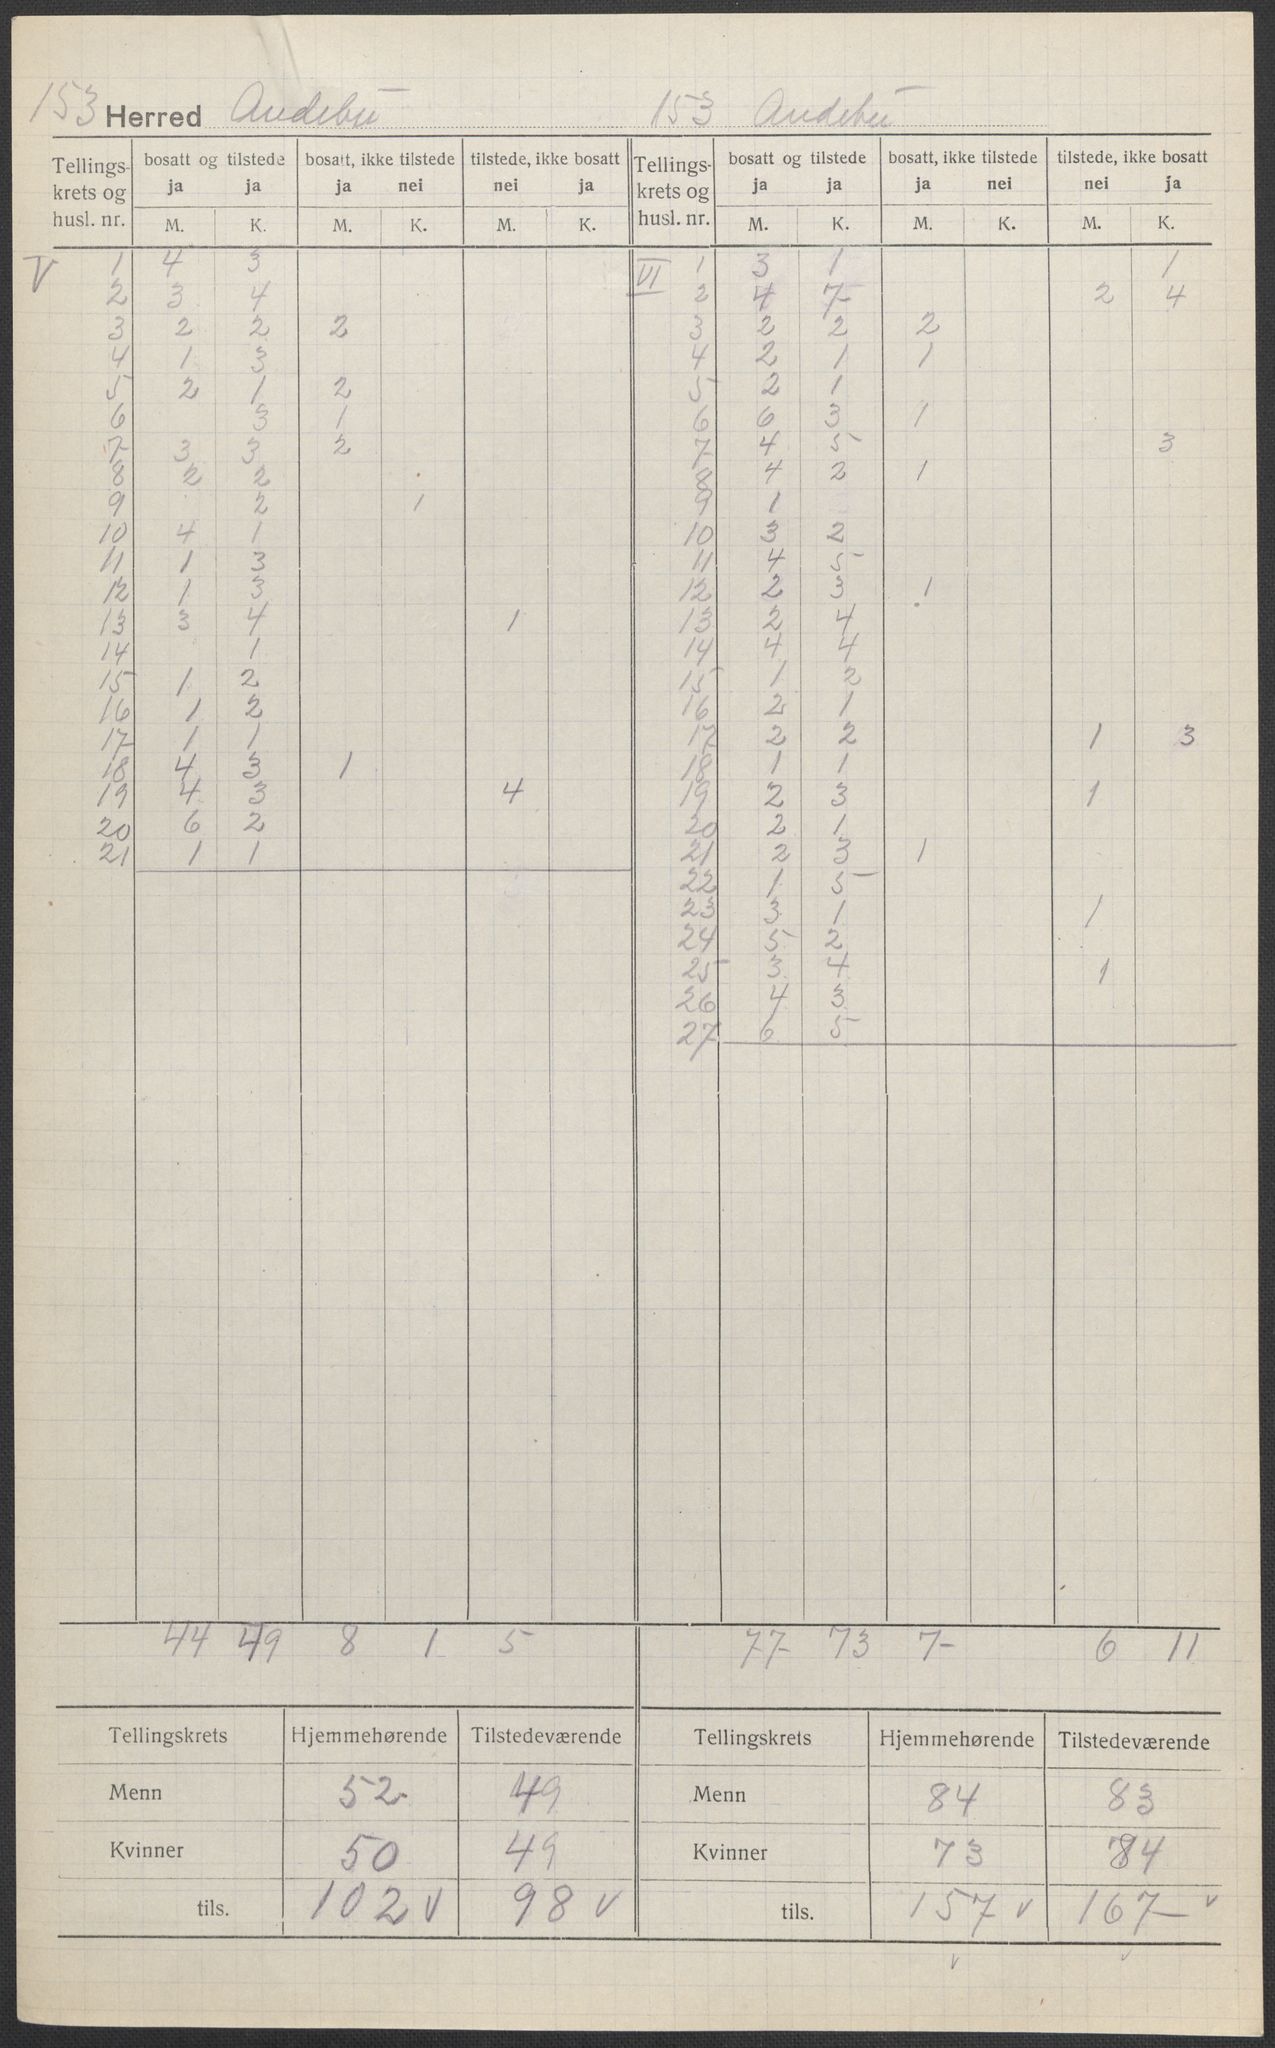 153 Herred Andebu 153 Andebu
Tellings-krets og husl. nr. bosatt og tilstede bosatt, ikke tilstede tilstede, ikke bosatt Tellings-krets og husl. nr. bosatt og tilstede bosatt, ikke tilstede tilstede, ikke bosatt
ja ja ja nei nei ja ja ja ja nei nei ja
M. K. M. K. M. K. M. K. M. K. M. K.
V 1 4 3 VI 1 3 1 1
2 3 4 2 4 7 2 4
3 2 2 2 3 2 2 2
4 1 3 4 2 1 1
5 2 1 2 5 2 1
6 3 1 6 6 3 1
7 3 3 2 7 4 5 3
8 2 2 8 4 2 1
9 2 1 9 1
10 4 1 10 3 2
11 1 3 11 4 5
12 1 3 12 2 3 1
13 3 4 1 13 2 4
14 1 14 4 4
15 1 2 15 1 2
16 1 2 16 2 1
17 1 1 17 2 2 1 3
18 4 3 1 18 1 1
19 4 3 4 19 2 3 1
20 6 2 20 2 1
21 1 1 21 2 3 1
22 1 5
23 3 1 1
24 5 2
25 3 4 1
26 4 3
27 6 5
44 49 8 1 5 77 73 7 6 11
Tellingskrets Hjemmehørende Tilstedeværende Tellingskrets Hjemmehørende Tilstedeværende
Menn 52 49 Menn 84 83
Kvinner 50 49 Kvinner 73 84
tils. 102 v 98 v tils. 157 v 167 v
v v